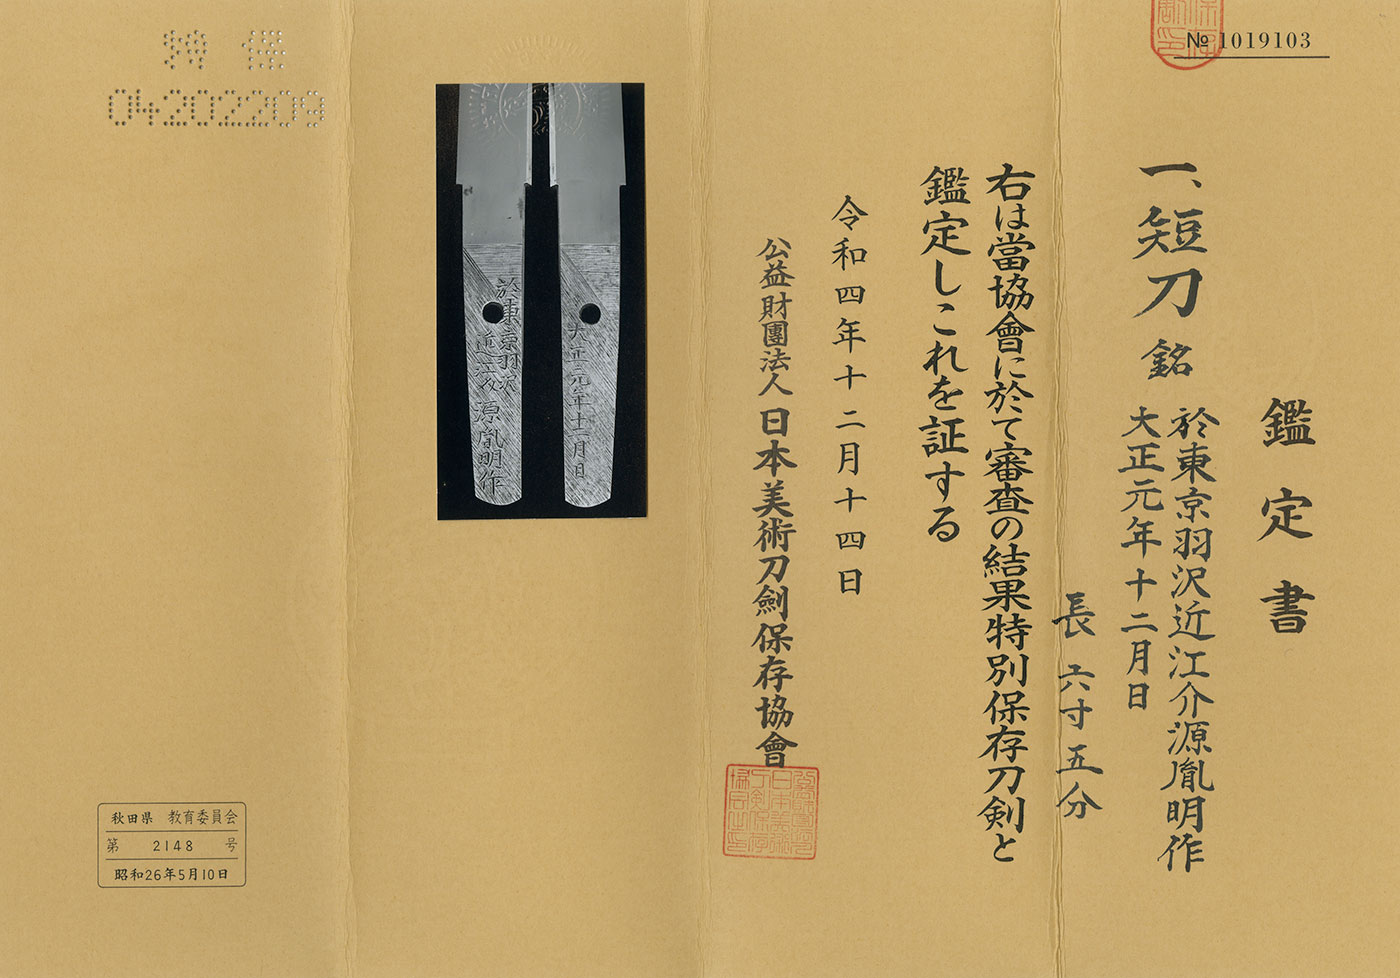 № 1019103
鑑定書
一、短刀 銘 於東京羽沢近江介源胤明作
大正元年十二月日
長六寸五分
右は當協會に於て審査の結果特別保存刀剣と
鑑定しこれを証する
令和四年十二月十四日
公益財團法人 日本美術刀劍保存協會
於東京羽沢
近江介源胤明作
大正元年十二月日
特保
04202209
秋田県 教育委員会
第 2148 号
昭和26年5月10日